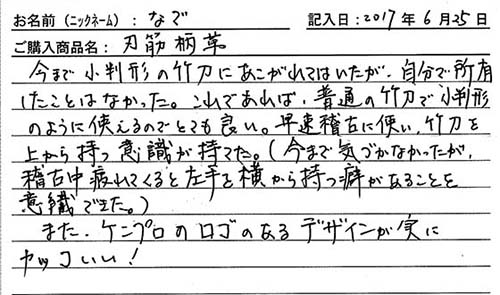 お名前（ニックネーム）：なで　記入日：2017年6月25日
ご購入商品名：刃筋柄革
今まで小判形の竹刀にあこがれてはいたが、自分で所有
したことはなかった。これであれば、普通の竹刀で小判形
のように使えるのでとても良い。早速稽古に使い、竹刀を
上から持つ意識が持てた。（今まで気づかなかったが、
稽古中疲れてくると左手を横から持つ癖があることを
意識できた。）
また、ケンプロのロゴのあるデザインが実に
カッコいい！